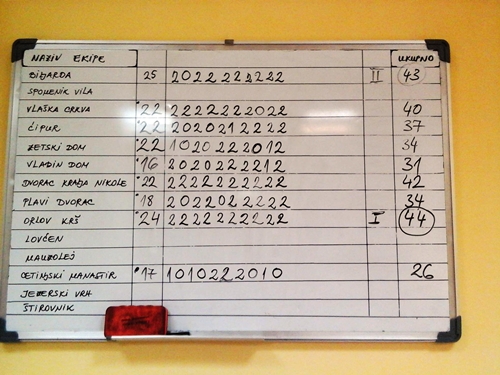 NAZIV EKIPE UKUPNO
BILJARDA 25 2022222222 II 43
SPOMENIK VILA
VLAŠKA CRKVA 22 2222222022 40
ĆIPUR 22 2020212222 37
ZETSKI DOM 22 1020222012 34
VLADIN DOM 16 2020222212 31
DVORAC KRALJA NIKOLE 22 2222222222 42
PLAVI DVORAC 18 2022022222 34
ORLOV KRŠ 24 2222222222 I 44
LOVĆEN
MAUZOLEJ
CETINJSKI MANASTIR 17 1010222010 26
JEZERSKI VRH
ŠTIROVNIK